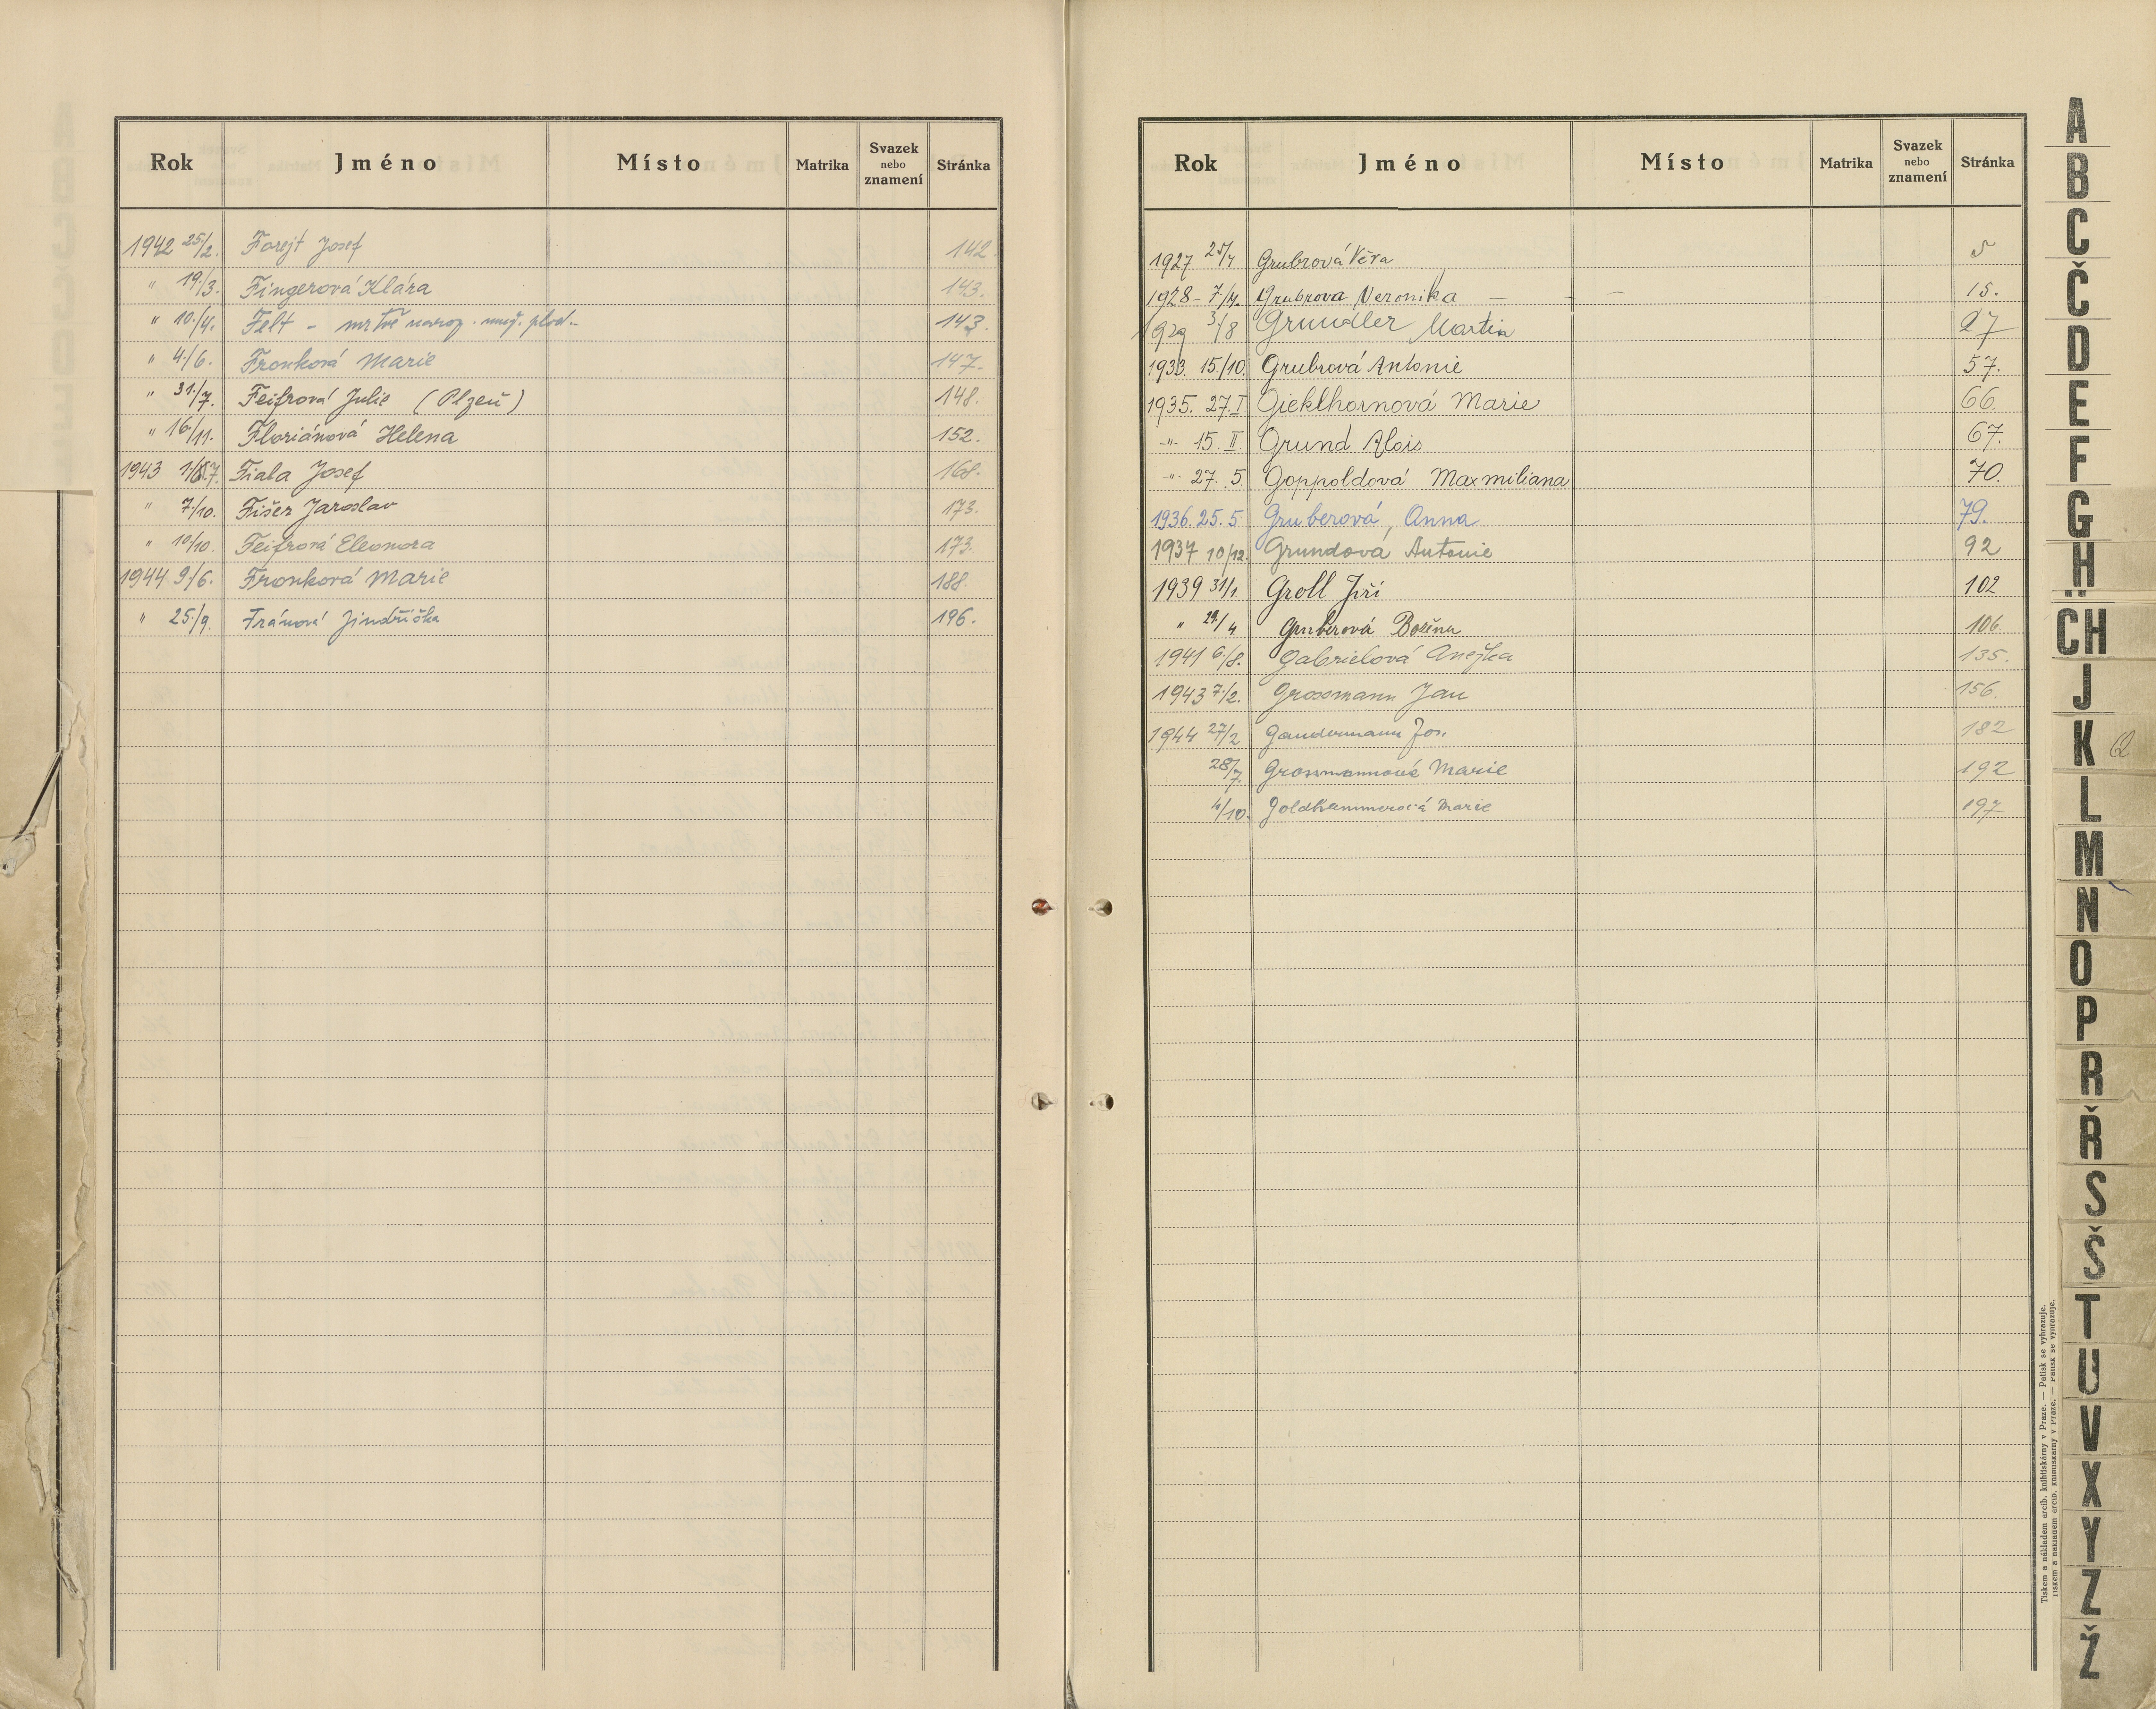 Rok Jméno Místo Matrika Svazek nebo znamení Stránka
1942 25/2. Forejt Josef 142.
" 19./3. Fingerová Klára 143.
" 10./4. Felt - mrtvě naroz. muž. plod.. 143.
" 4./6. Fronková Marie 147.
" 31./7. Feifrová Julie (Plzeň) 148.
" 16./11. Floriánová Helena 152.
1943 Fiala Josef 168.
" 7./10. Fišer Jaroslav 173.
" 10/10. Feifrová Eleonora 173.
1944 9./6. Fronková Marie 188.
" 25./9. Fránová Jindřiška 196.
Rok Jméno Místo Matrika Svazek nebo znamení Stránka
1927 25/7 Grubrová Věra 5
1928 - 7./4. Grubrova Veronika - - - 15.
1929 3/8 Grundler Martin 27
1933. 15./10. Grubrová Antonie 57.
1935. 27. I. Gieklhornová Marie 66.
-"- 15. II Grund Alois 67.
-"- 27. 5. Goppoldová Maxmiliana 70.
1936. 25. 5. Gruberová, Anna 79.
1937 10/12. Grundová Antonie 92
1939 31/1. Groll Jiří 102
" 29/4 Gruberová Božena 106.
1941 6./8. Gabrielová Anežka 135.
1943 7./2. Grossmann Jan 156.
1944 27/2 Gandermann Jos. 182
28/7. Grossmannová Marie 192
4/10. Goldkammerová Marie 197
A
B
C
Č
D
E
F
G
H
CH
J
K
L
M
N
O
P
R
Ř
S
Š
T
U
V
X
Y
Z
Ž
Tiskem a nákladem arcib. knihtiskárny v Praze. — Patisk se vyhrazuje.
Tiskem a nákladem arcib. knihtiskárny v Praze. — Patisk se vyhrazuje.